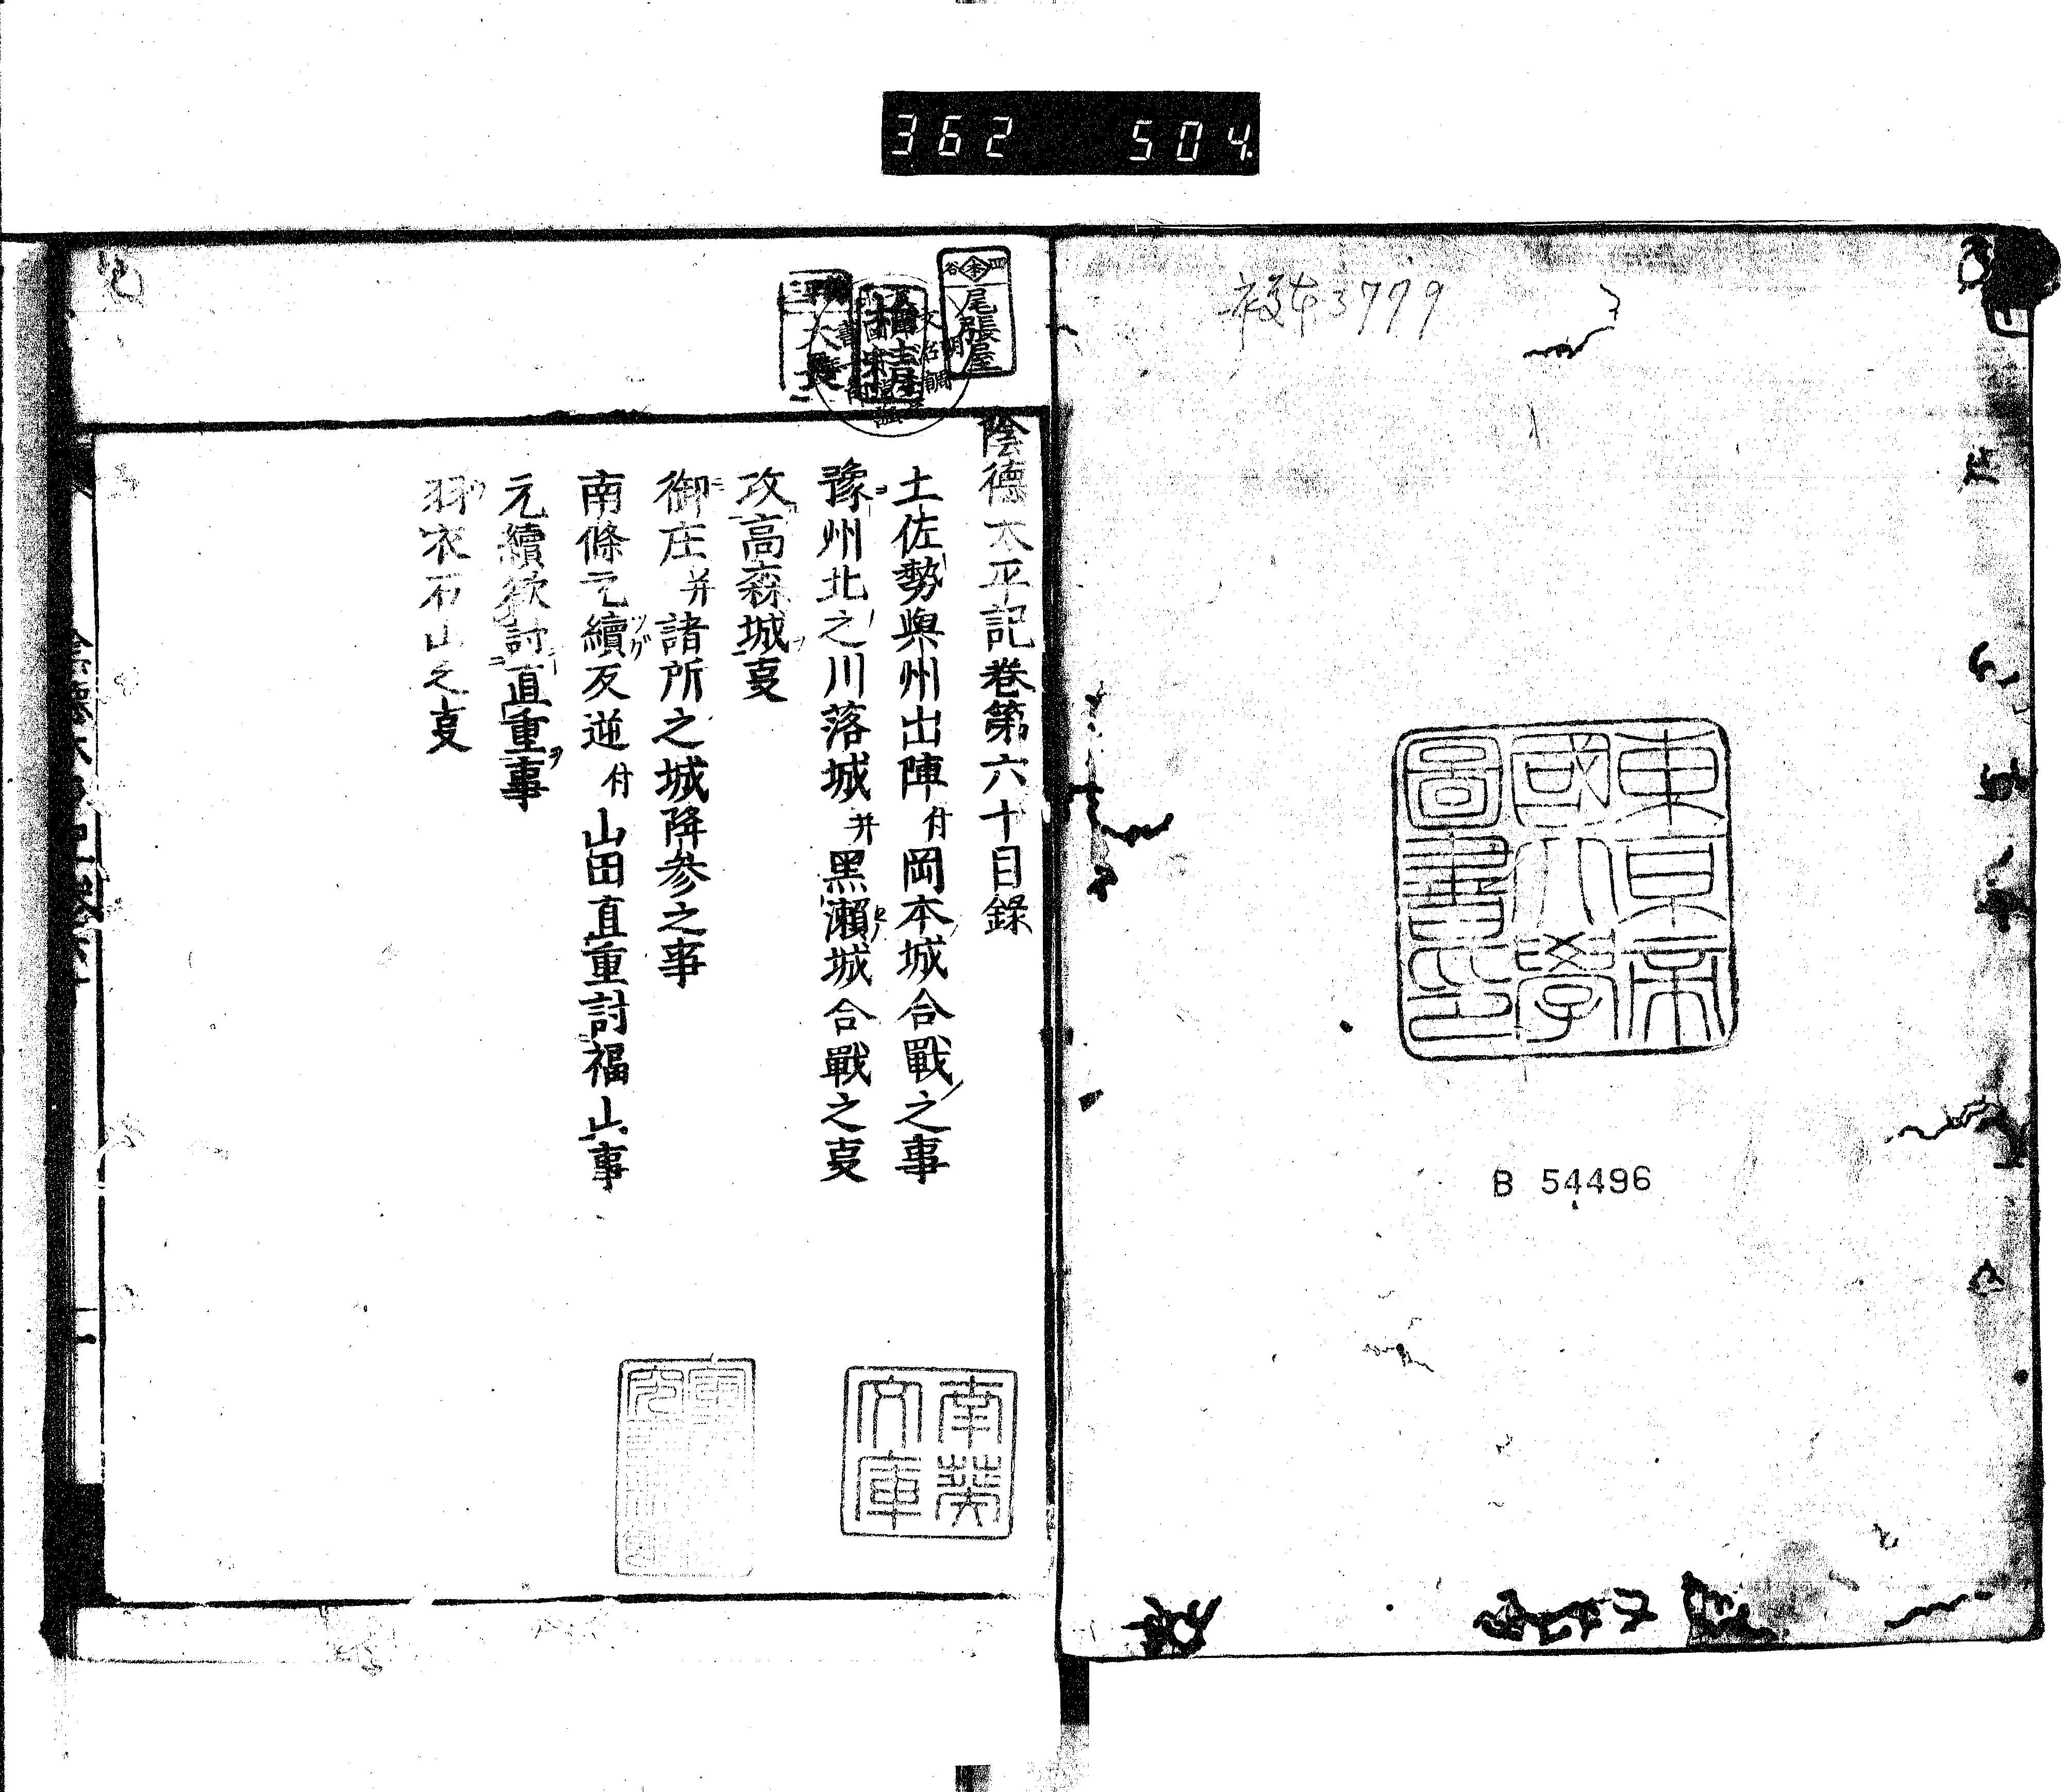 362 504
複本3799
東京帝
國大學
圖書印
B 54496
四谷
尾張屋
陰德太平記卷第六十目錄
土佐勢與州出陣付岡本城合戰之事
豫州北之川落城并黑瀬城合戰之叓
攻高森城叓
御庄并諸所之城降参之事
南條元續反逆付山田直重討福山事
元續欲討直重事
羽衣石山之叓
南葵
文庫